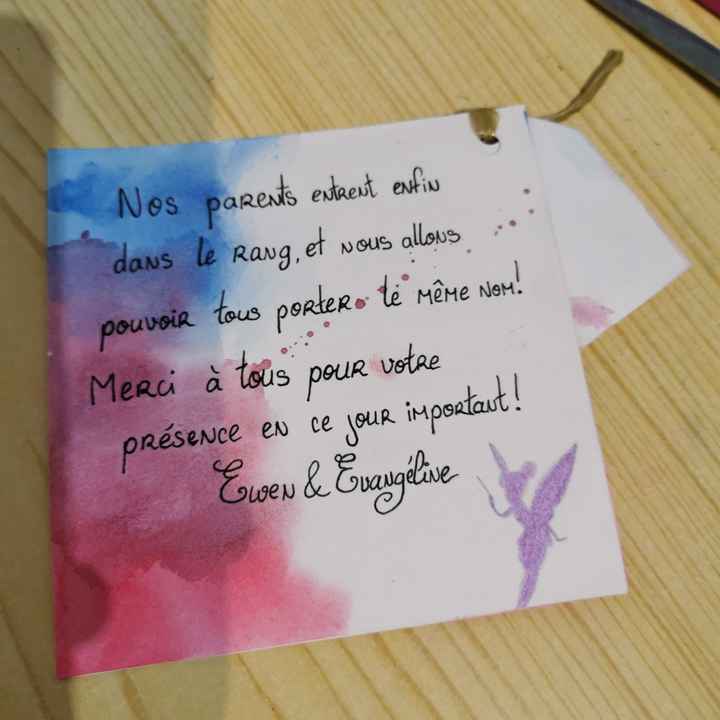 Nos parents entrent enfin
dans le rang, et nous allons
pouvoir tous porter le même nom!
Merci à tous pour votre
présence en ce jour important!
Ewen & Evangéline